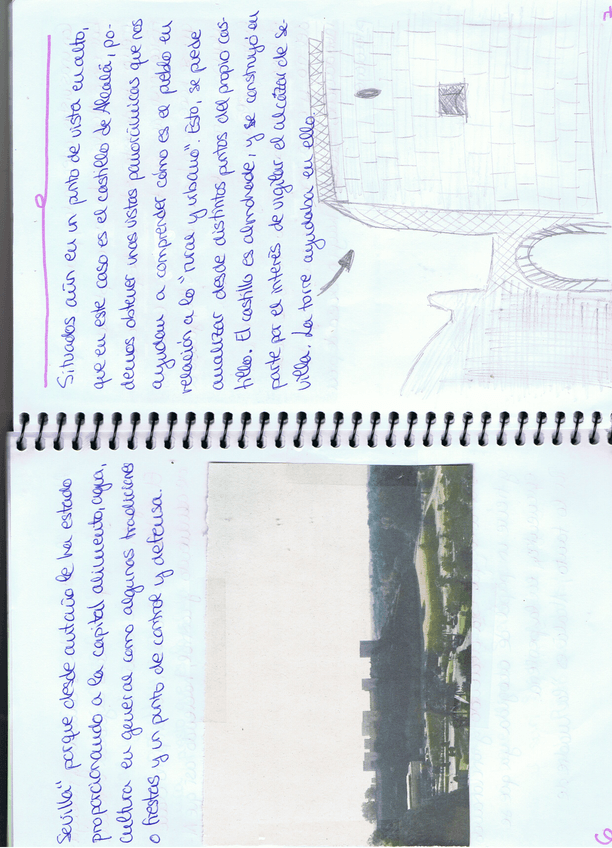 Sevilla" porque desde antaño le ha estado
proporcionando a la capital alimento, agua,
cultura en general como algunas tradiciones
o fiestas y un punto de control y defensa.
6
Situados aún en un punto de vista en alto,
que en este caso es el castillo de Alcalá, po-
demos obtener unas vistas panorámicas que nos
ayudan a comprender cómo es el pueblo en
relación a lo "rural y urbano". Esto, se puede
analizar desde distintos puntos del propio cas-
tillo. El castillo es almohade, y se construyó en
parte por el interés de vigilar el alcázar de Se-
villa. La torre ayudaba en ello.
7